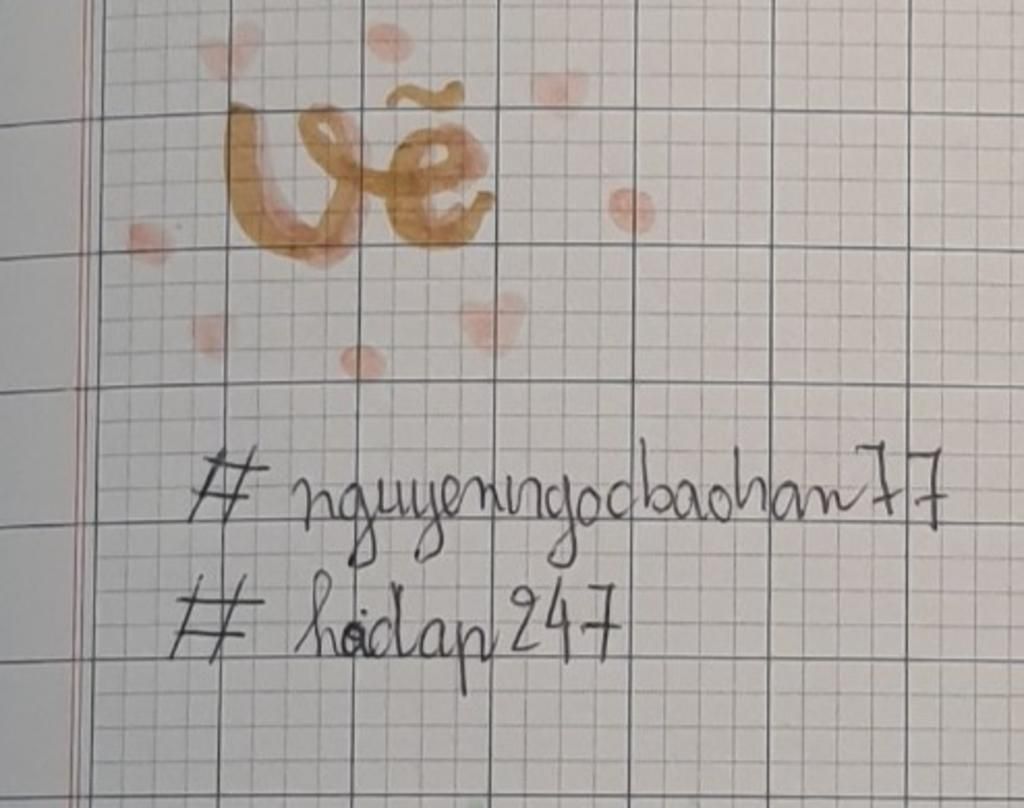 Vẽ
# nguyenngocbaohan77
# hoidap247